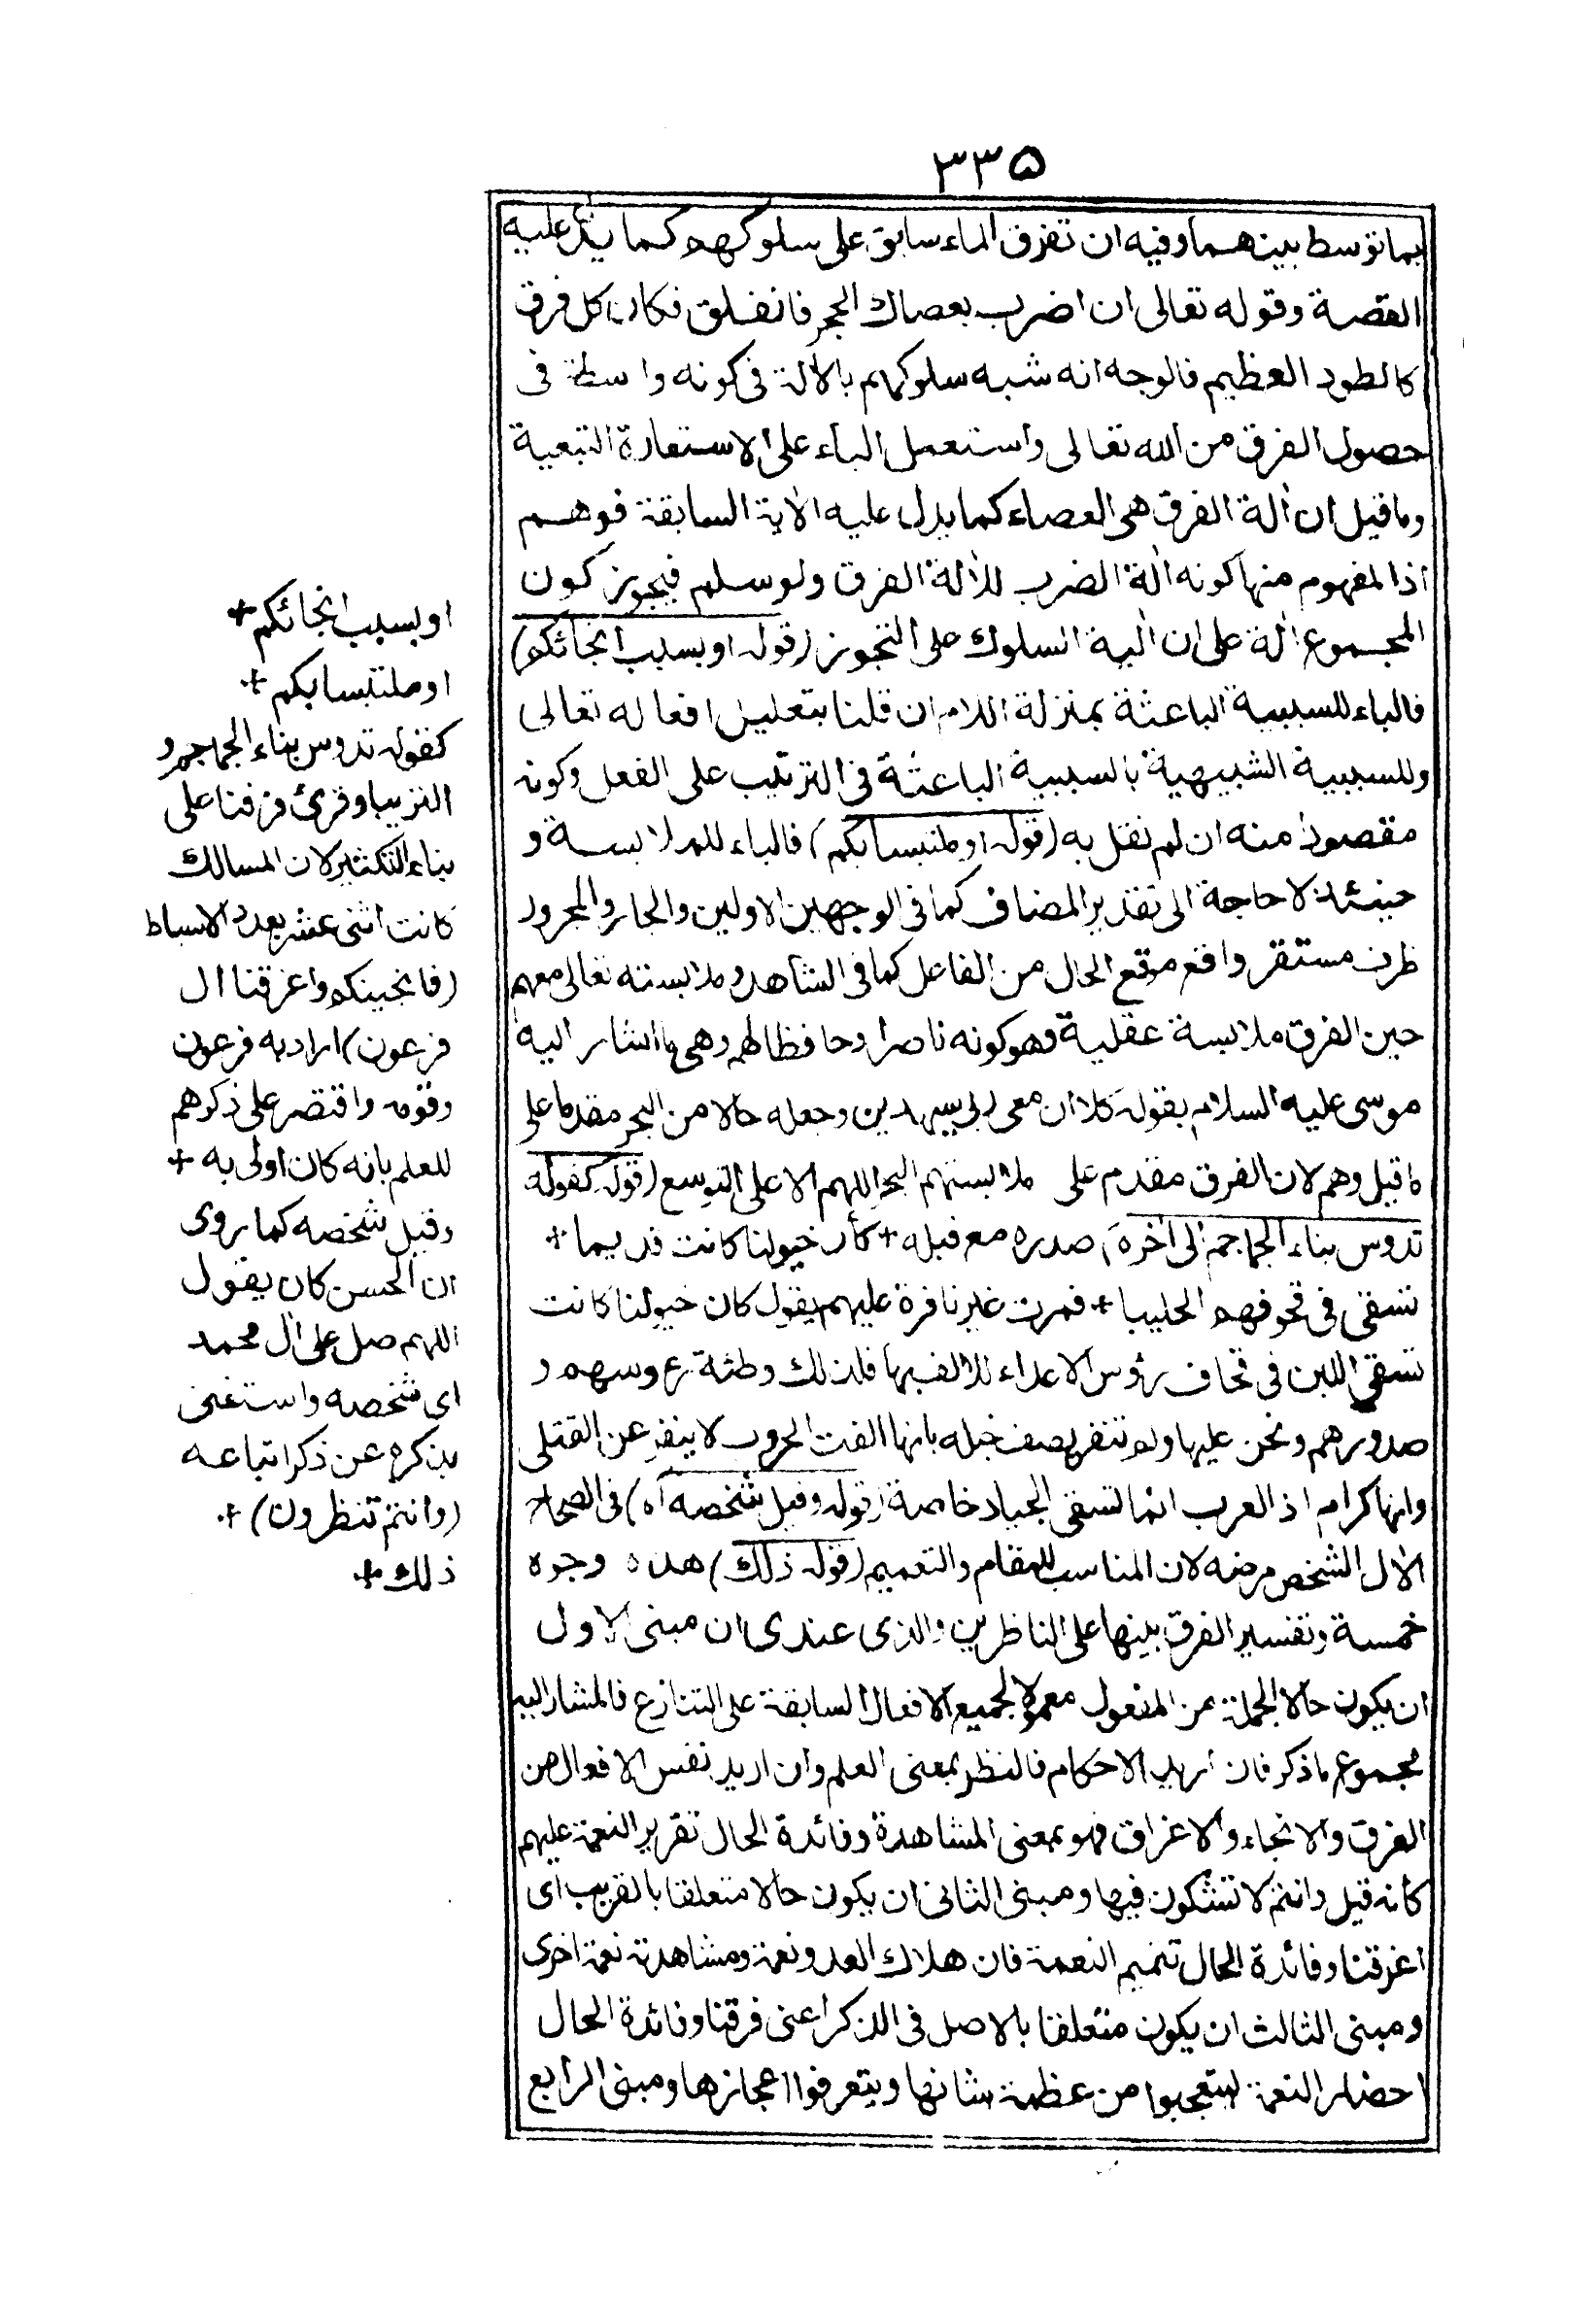 ٣٣٥
بما توسط بينهما وفيه ان تفرق الماء سابق على سلوكهم كما يدل عليه
القصة وقوله تعالى ان اضرب بعصاك الحجر فانفلق فكان كل فرق
كالطود العظيم فالوجه انه شبه سلوكهم بالالة فى كونه واسطة فى
حصول الفرق من الله تعالى واستعمل الباء على الاستعارة التبعية
وما قيل ان ألة الفرق هى العصاء كما يدل عليه الاية السابقة فوهم
اذا لمفهوم منها كونه ألة الضرب للألة الفرق ولو سلم فيجوز كون
المجموع ألة على ان ألية السلوك على التجوز (قوله او بسبب انجائكم)
فالباء للسببية الباعثة بمنزلة اللام ان قلنا بتعليل افعاله تعالى
وللسببية الشبيهية بالسببية الباعثة فى الترتيب على الفعل وكونه
مقصودا منه ان لم نقل به (قوله او ملتبسا بكم) فالباء للملابسة و
حينئذ لا حاجة الى تقدير المضاف كما فى الوجهين الاولين والجار والمجرور
ظرف مستقر واقع موقع الحال من الفاعل كما فى الشاهد وملابسته تعالى معهم
حين الفرق ملابسة عقلية وهو كونه ناصرا وحافظا لهم وهى ما اشار اليه
موسى عليه السلام بقوله كلا ان معى ربى سيهدين وجعله حالا من البحر مقدما على
ما قيل وهم لان الفرق مقدم على ملابستهم البحر اللهم الا على التوسع (قوله كقوله
تدوس بناء الجماجم الى أخره) صدره مع قبله + كأن خيولنا كانت قديما +
تسقى فى قحوفهم الحليبا + فمرت غير نافرة عليهم يقول كان خيولنا كانت
تسقى اللبن فى قحاف رؤس الاعداء للالف بها فلذلك وطئة رءوسهم و
صدورهم ونحن عليها ولم تنفر يصف خيله بانها الفت الحروب لا ينفر عن القتلى
وانها كرام اذ العرب انما تسقى الجياد خاصة (قوله وقيل شخصه اه) فى الصحاح
الأل الشخص مرضه لان المناسب للمقام والتعميم (قوله ذلك) هذه وجوه
خمسة وتفسير الفرق بينها على الناظرين والذى عندى ان مبنى الاول
ان يكون حالا لجملة من المفعول معمولا لجميع الافعال السابقة على التنازع فالمشار اليه
مجموع ما ذكر فان اريد الاحكام فالنظر بمعنى العلم وان اريد نفس الافعال من
الفرق والانجاء والاغراق فهو بمعنى المشاهدة وفائدة الحال تقرير النعمة عليهم
كأنه قيل وانتم لا تشكون فيها ومبنى الثانى ان يكون حالا متعلقا بالقريب اى
اغرقنا وفائدة الحال تتميم النعمة فان هلاك العدو نعمة ومشاهدته نعمة اخرى
ومبنى الثالث ان يكون متعلقا بالاصل فى الذكر اعنى فرقنا وفائدة الحال
احضار النعمة ليتعجبوا من عظمة شانها ويتعرفوا اعجازها ومبنى الرابع
او بسبب انجائكم +
او ملتبسا بكم +
كقوله تدوس بناء الجماجم و
التريبا وقرئ فرقنا على
بناء التكثير لان المسالك
كانت اثنى عشر بعدد الاسباط
(فانجينكم واغرقنا ال
فرعون) اراد به فرعون
وقومه واقتصر على ذكرهم
للعلم بانه كان اولى به +
وقيل شخصه كما روى
ان الحسن كان يقول
اللهم صل على أل محمد
اى شخصه واستغنى
بذكره عن ذكر اتباعه
(وانتم تنظرون) +
ذلك +